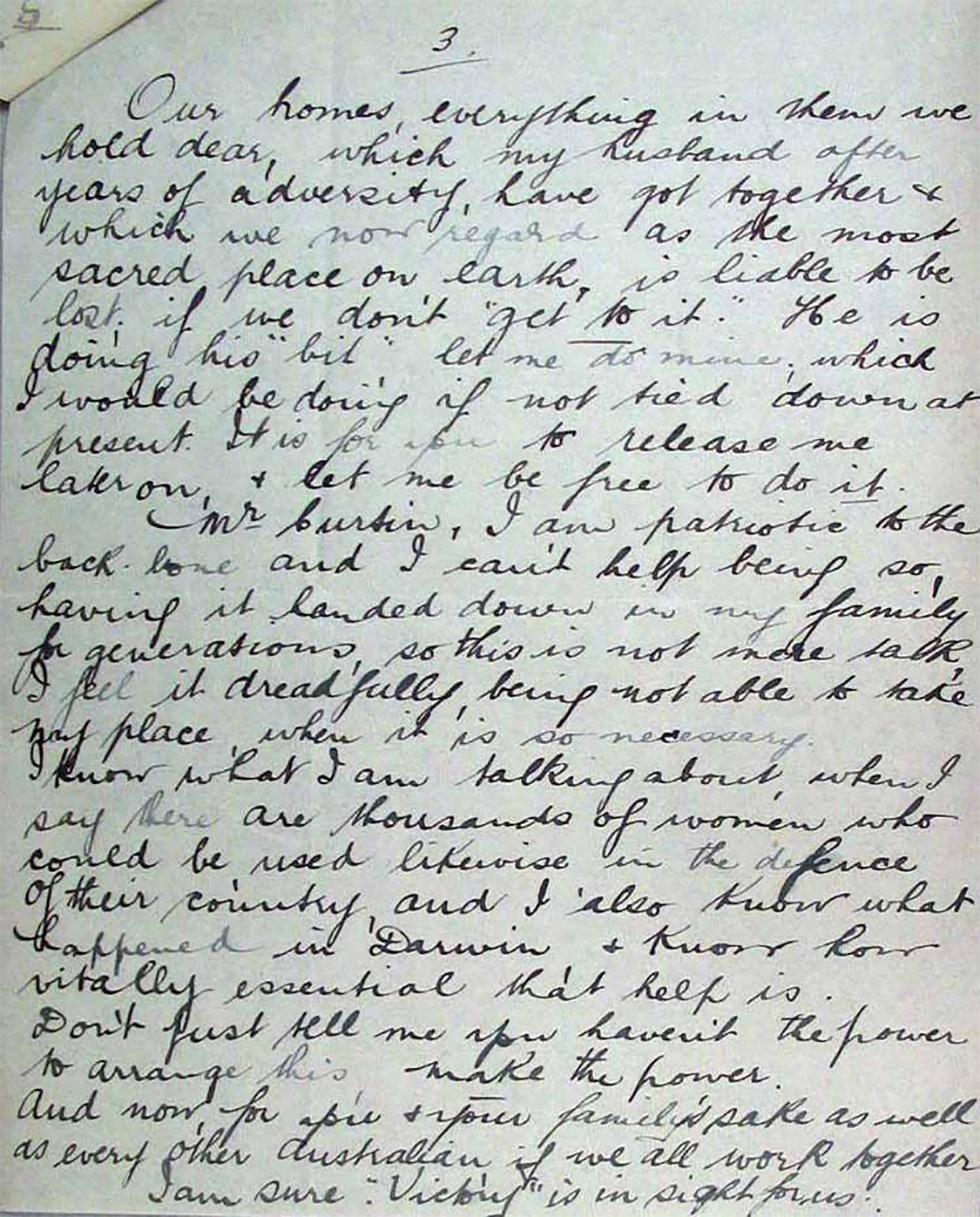 3.
Our homes, everything in them we
hold dear, which my husband after
years of adversity, have got together &
which we now regard as the most
sacred place on earth, is liable to be
lost. if we don't "get to it". He is
doing his "bit" let me do mine, which
I would be doing if not tied down at
present. It is for you to release me
later on, & let me be free to do it.
Mr Curtin, I am patriotic to the
back-bone and I can't help being so,
having it handed down in my family
for generations, so this is not mere talk,
I feel it dreadfully, being not able to take
my place, when it is so necessary.
I know what I am talking about, when I
say there are thousands of women who
could be used likewise in the defence
of their country, and I also know what
happened in Darwin & know how
vitally essential that help is.
Don't just tell me you haven't the power
to arrange this, make the power.
And now, for you & your family's sake as well
as every other Australian if we all work together
I am sure "Victory" is in sight for us.